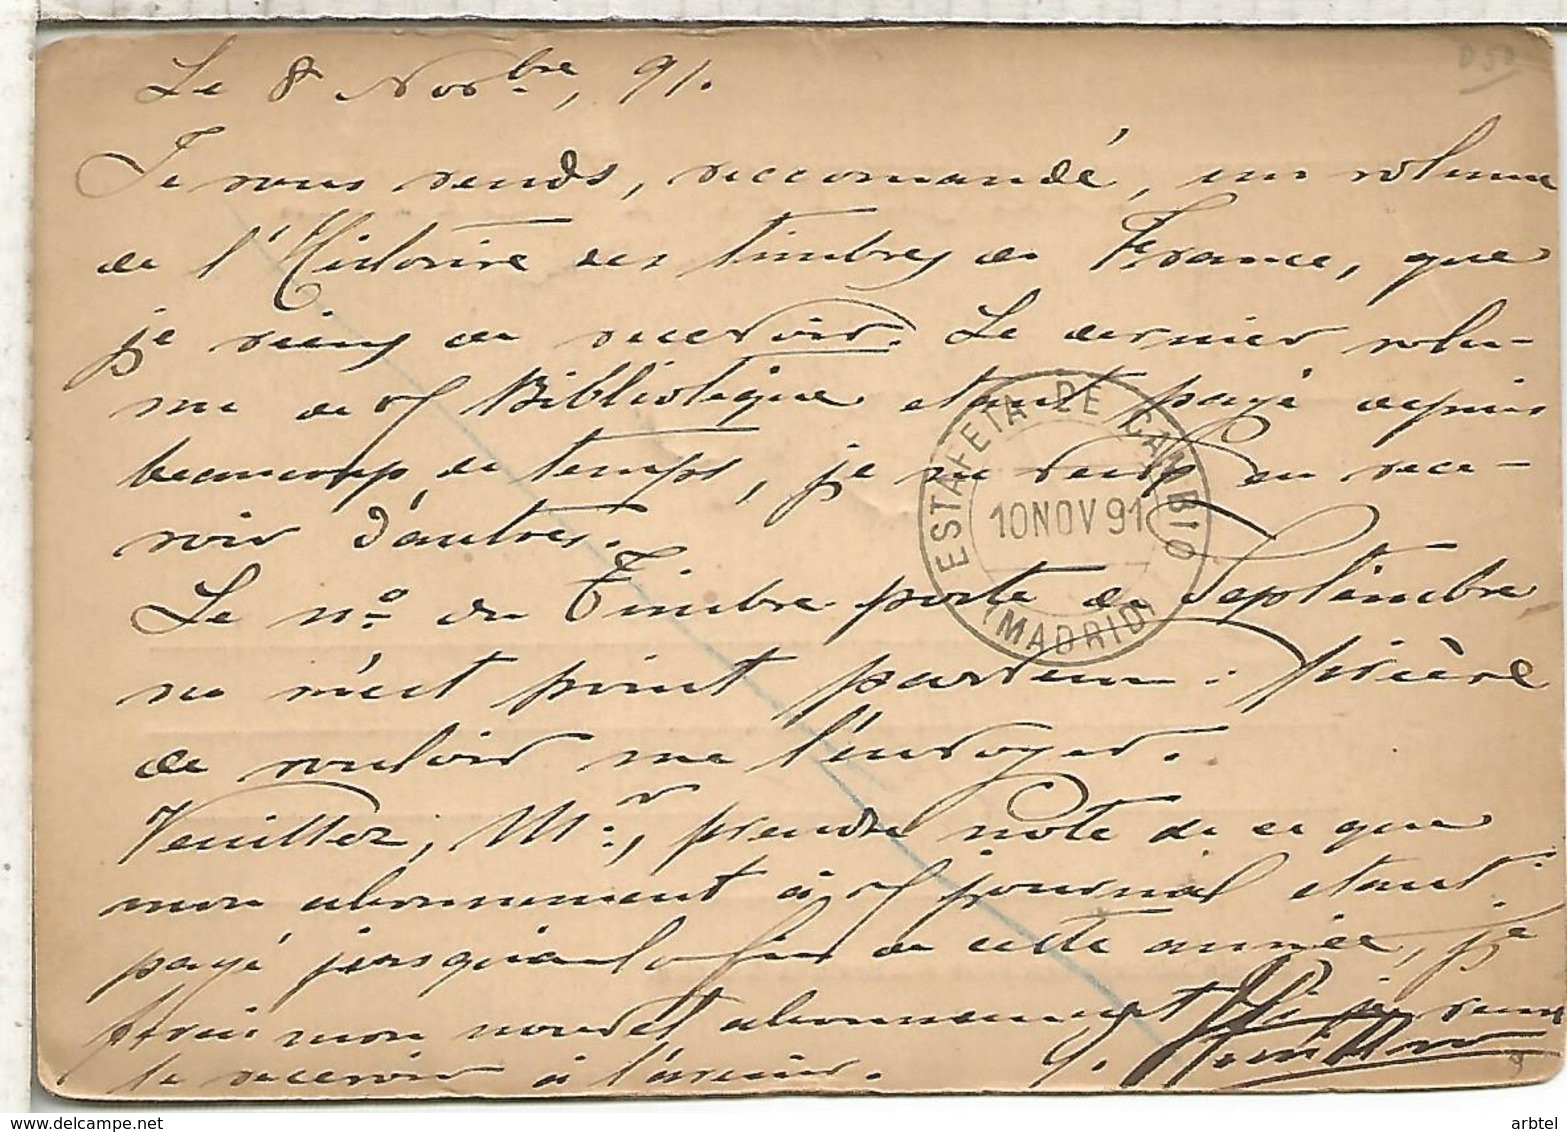 Le 8 Novbre, 91.
Je vous rends, reccomandé, un volume
de l'Histoire des timbres de France, que
je viens de recevoir. Le dernier volu-
me de Bibliotèque etant payé depuis
beaucoup de temps, je ne veux en rece-
voir d'autres.
Le nº. du Timbre poste de Septembre
ne m'est point parvenu. prière
de vouloir me l'envoyer.
Veuillez, Mr., prendre note de ce que
mon abonnement à journal etant
payé jusqu'a la fin de cette année, je
ferais mon nouvel abonnement si je veux
le recevoir à l'avenir.
ESTAFETA DE CAMBIO
10 NOV 91
(MADRID)
arbtel